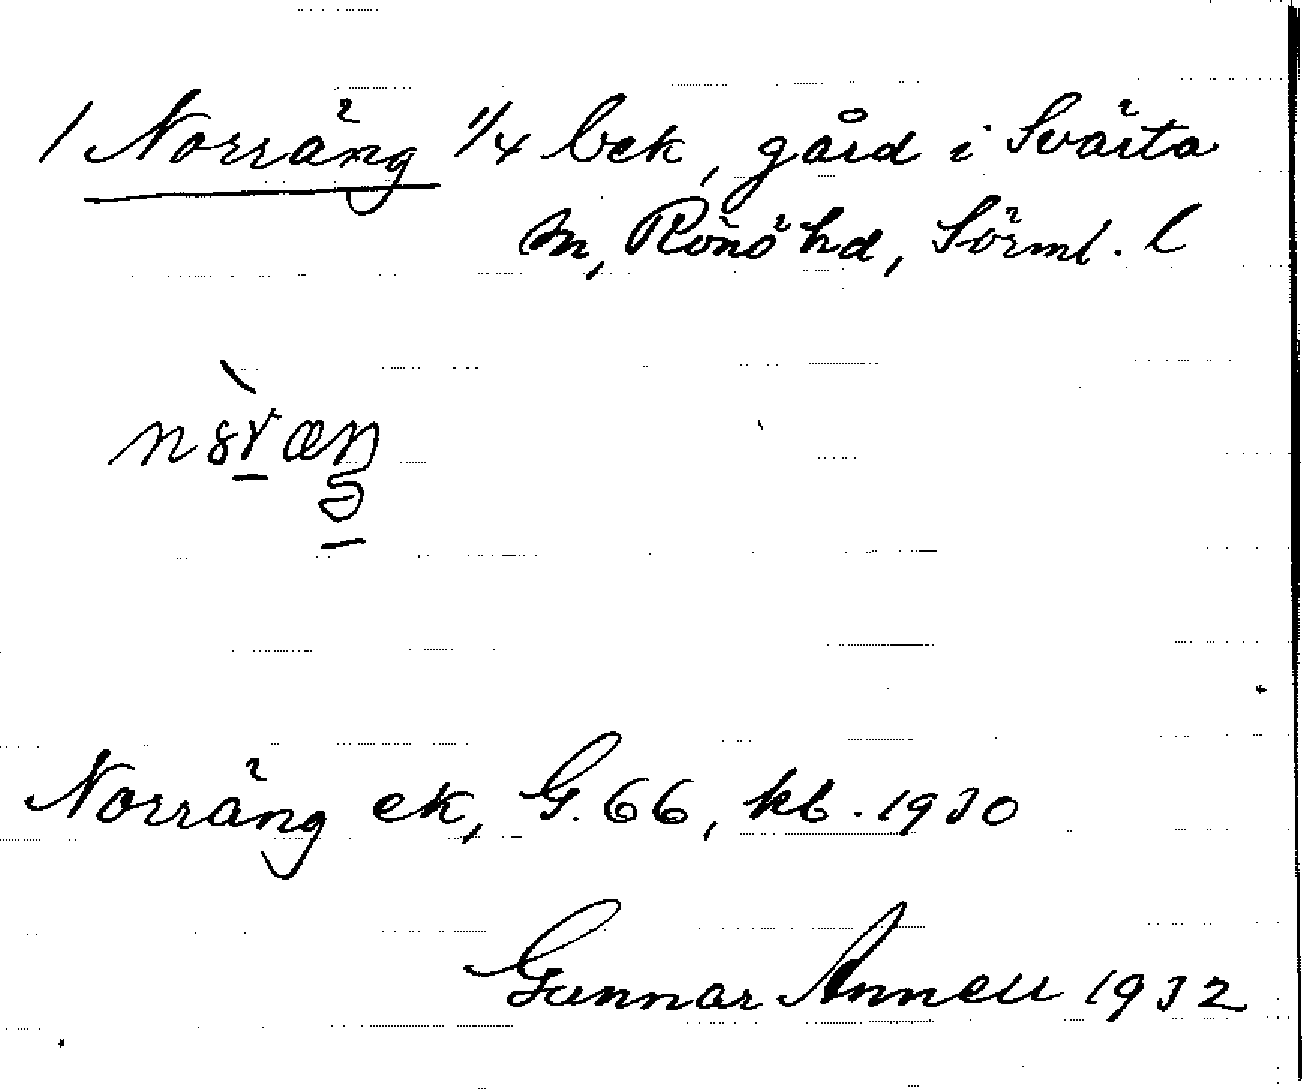 1 Norräng 1/4 bek, gård i Svärta
sn, Rönö hd, Sörml. l
Norräng ek, G. 66, kb. 1930
Gunnar Annell 1932